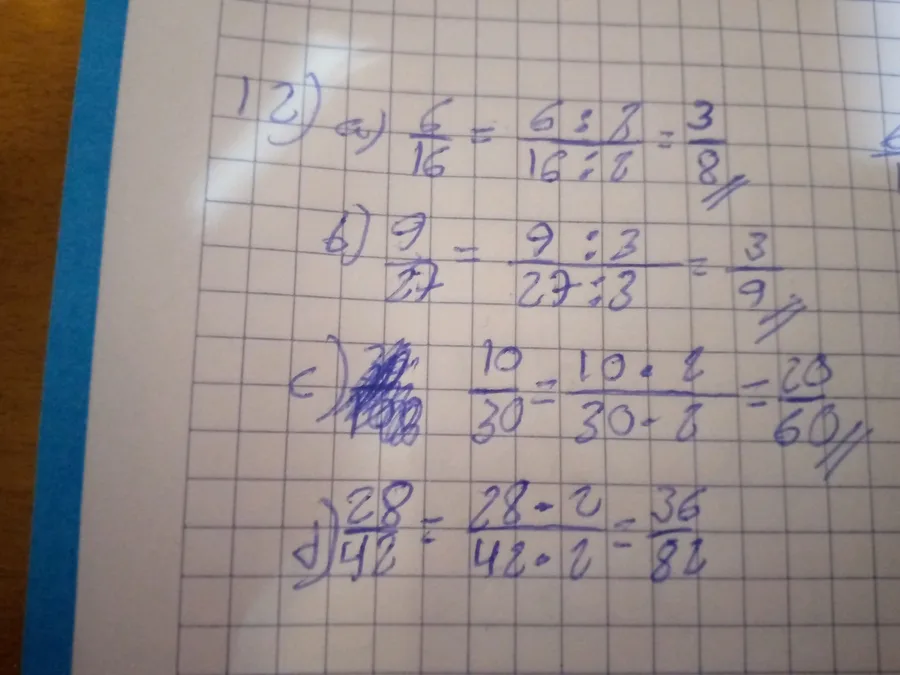 12) a) 6/16 = 6 : 2/16 : 2 = 3/8
b) 9/27 = 9 : 3/27 : 3 = 3/9
c) 10/30 = 10 · 2/30 · 2 = 20/60
d) 28/42 = 28 · 2/42 · 2 = 36/82